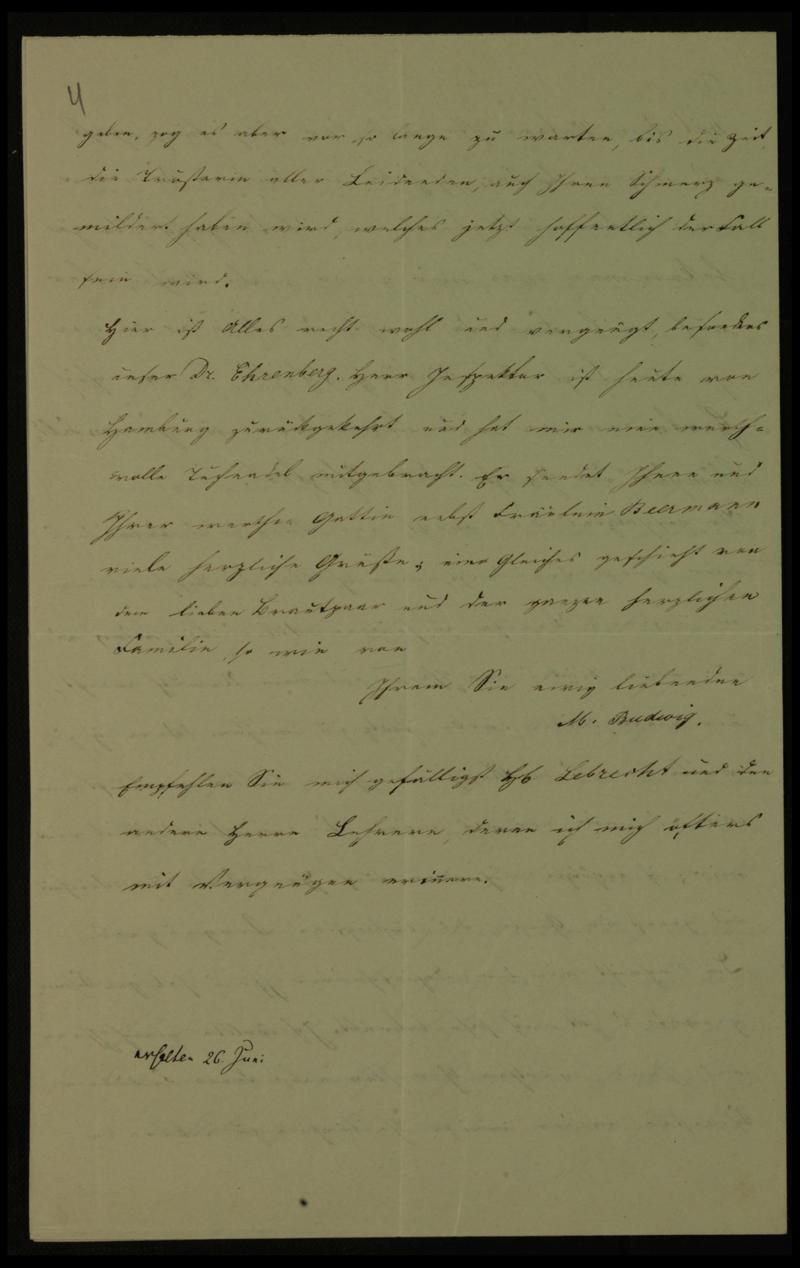 4
geben, zog es aber vor so lange zu warten, bis die Zeit,
die Trösterin aller Leidenden, auch Ihren Schmerz ge-
mildert haben wird, welches jetzt hoffentlich der Fall
sein wird.
Hier ist Alles recht wohl und vergnügt, besonders
unser Dr. Ehrenberg. Herr Inspektor ist heute von
Hamburg zurückgekehrt und hat mir eine werth-
volle mitgebracht. Er sendet Ihnen und
Ihrer werthen Gattin nebst Fräulein Beermann
viele herzliche Grüße; ein Gleiches geschieht von
dem lieben Brautpaar und der ganzen herzlichen
Familie, so wie von
Ihrem Sie ewig liebenden
M. Budwig.
Empfehlen Sie mich gefälligst H. Lebrecht und den
andern Herrn Lehrern, deren ich mich öfters
mit Vergnügen erinnere.
erhalten 26. Juni